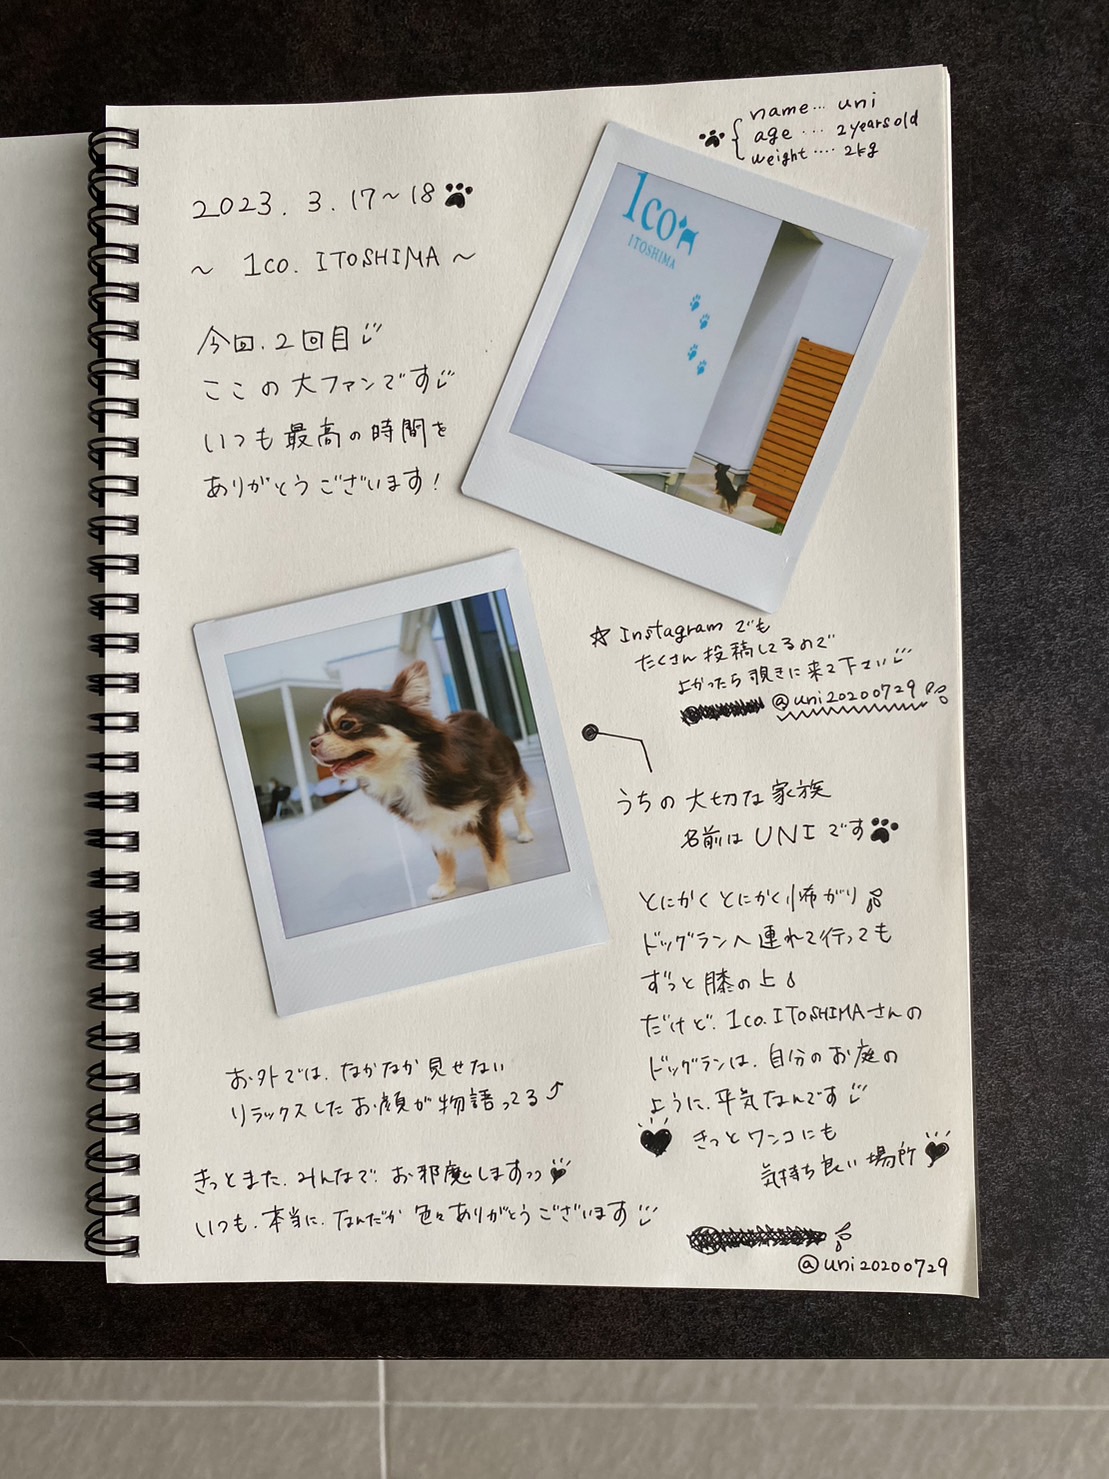 name… uni
age … 2years old
weight …. 2kg
2023. 3. 17〜18
〜 1co. ITOSHIMA 〜
今回、2回目
ここの大ファンです
いつも最高の時間を
ありがとうございます!
1co
ITOSHIMA
☆ Instagramでも
たくさん投稿してるので
よかったら覗きに来て下さい
@uni20200729
うちの大切な家族
名前はUNIです
とにかくとにかく怖がり
ドッグランへ連れて行っても
ずっと膝の上
だけど、1co.ITOSHIMAさんの
ドッグランは、自分のお庭の
ように、平気なんです
きっとワンコにも
気持ち良い場所
お外では、なかなか見せない
リラックスしたお顔が物語ってる
きっとまた、みんなで、お邪魔しますっっ
いつも、本当に、なんだか色々ありがとうございます
@uni20200729